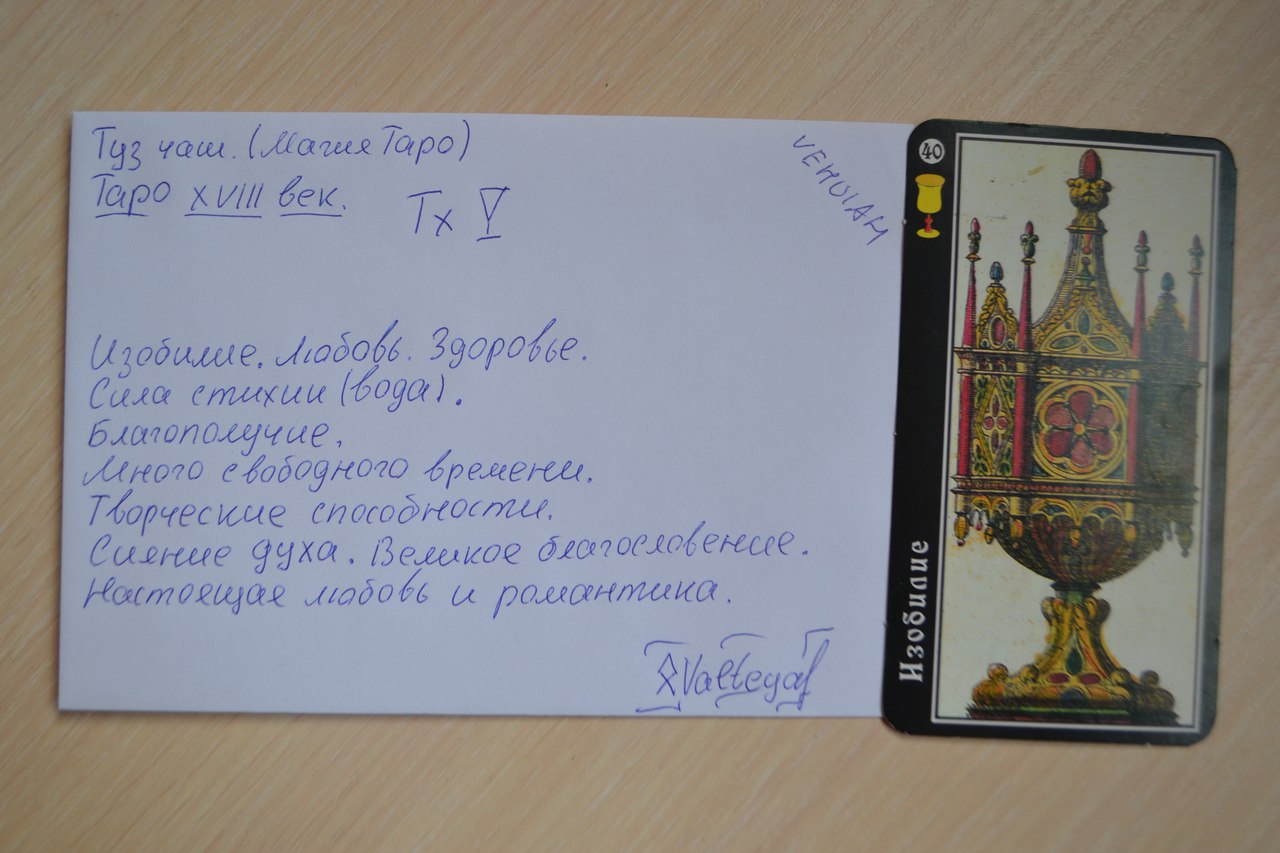 Туз чаш. (Магия Таро)
Таро XVIII век.
Тх V
VEHUIAH
Изобилие. Любовь. Здоровье.
Сила стихии (вода).
Благополучие.
Много свободного времени.
Творческие способности.
Сияние духа. Великое благословение.
Настоящая любовь и романтика.
40
Изобилие